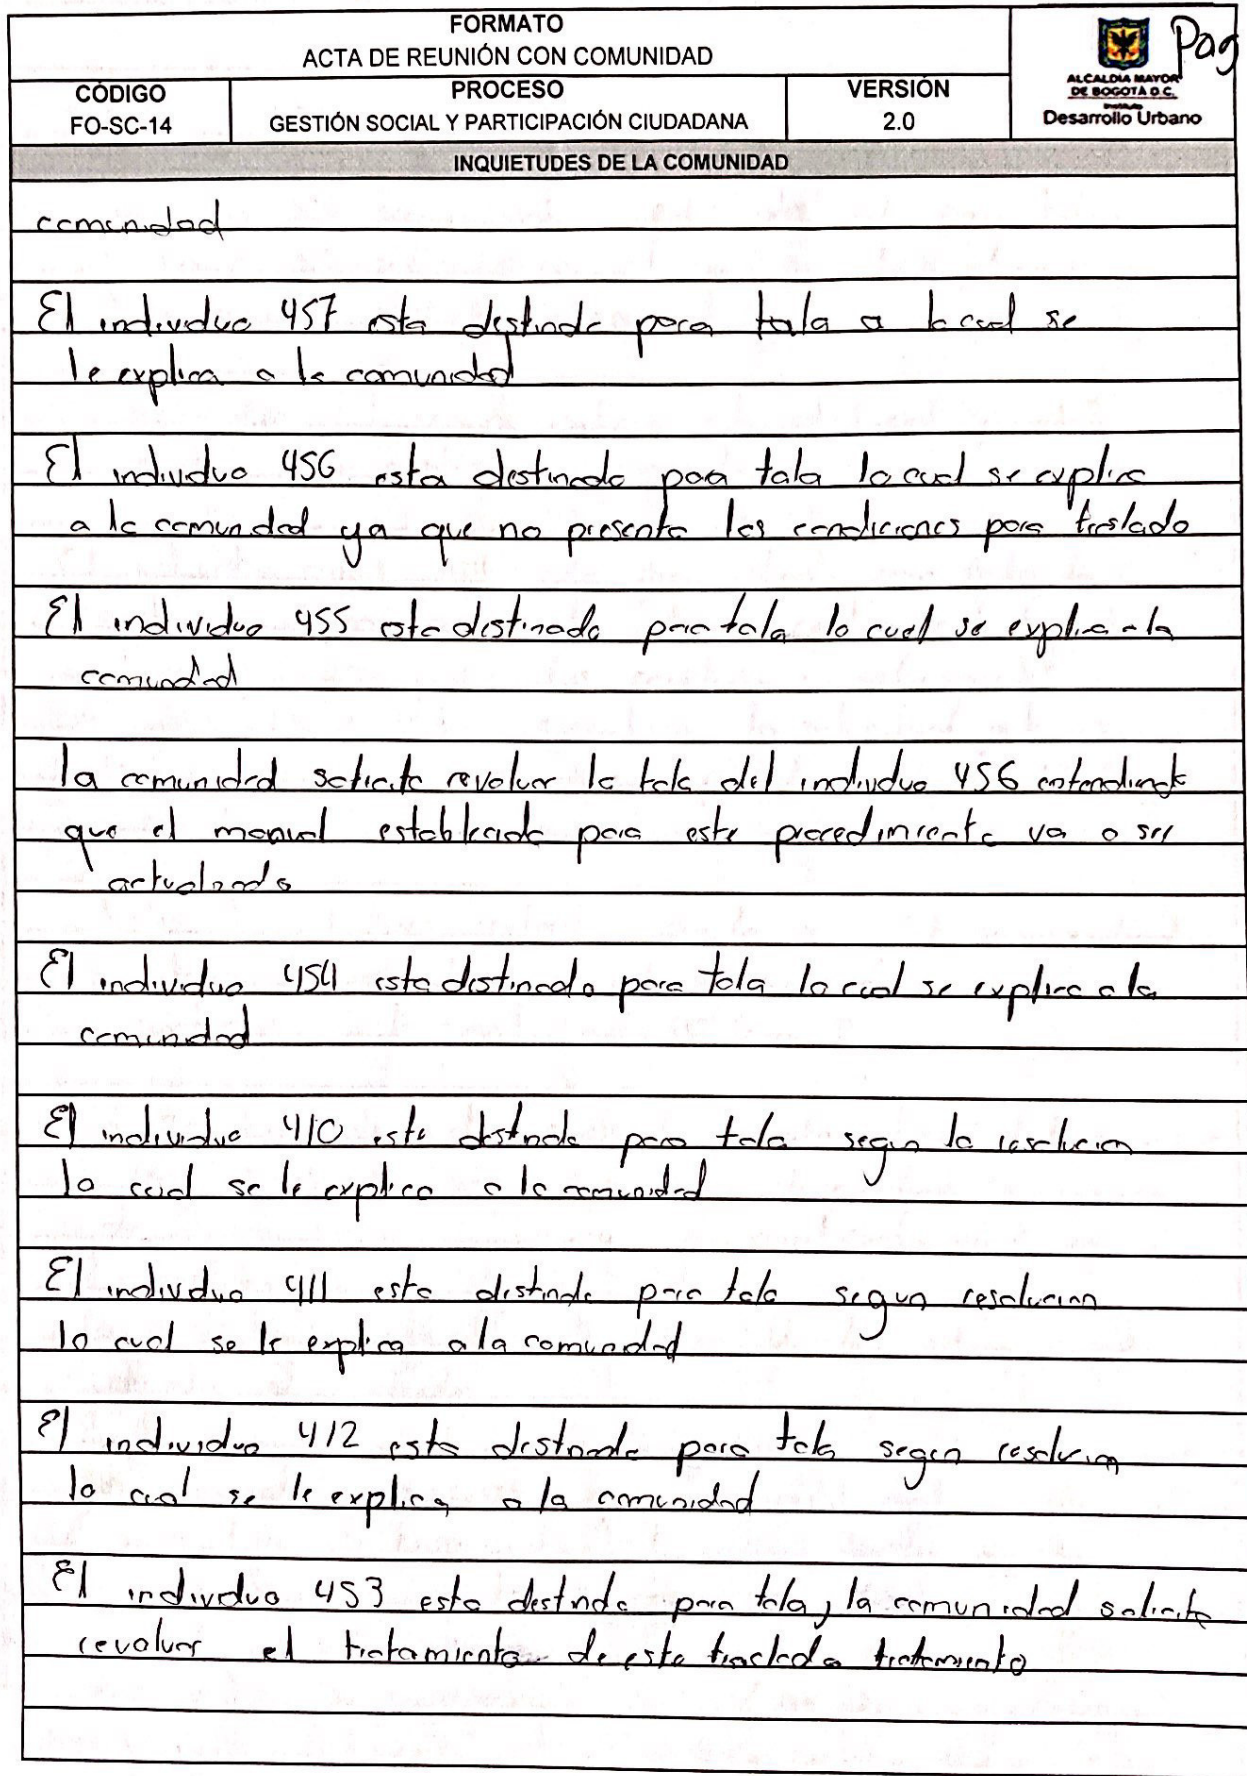 FORMATO
ACTA DE REUNIÓN CON COMUNIDAD
CÓDIGO
FO-SC-14
PROCESO
GESTIÓN SOCIAL Y PARTICIPACIÓN CIUDADANA
VERSIÓN
2.0
Pag
ALCALDIA MAYOR
DE BOGOTÁ D.C.
Instituto
Desarrollo Urbano
INQUIETUDES DE LA COMUNIDAD
comunidad
El individuo 457 esta destinado para tala a lo cual se
le explica a la comunidad
El individuo 456 esta destinado para tala lo cual se explica
a la comunidad ya que no presenta las condiciones para traslado
El individuo 455 esta destinado para tala lo cual se explica a la
comunidad
la comunidad solicita revaluar la tala del individuo 456 entendiendo
que el manual establecido para este procedimiento va a ser
actualizado
El individuo 454 esta destinado para tala lo cual se explica a la
comunidad
El individuo 410 esta destinado para tala segun la resolucion
lo cual se le explica a la comunidad
El individuo 411 esta destinado para tala segun resolucion
lo cual se le explica a la comunidad
El individuo 412 esta destinado para tala segun resolucion
lo cual se le explica a la comunidad
El individuo 453 esta destinado para tala, la comunidad solicita
revaluar el tratamiento de este traslado tratamiento